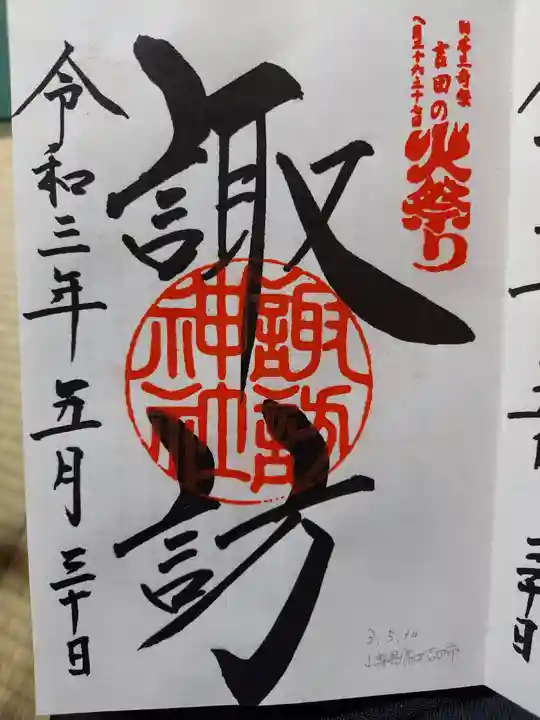 日本三奇祭
吉田の
火祭り
八月二十六二十七日
諏訪
諏訪
神社
令和三年五月三十日